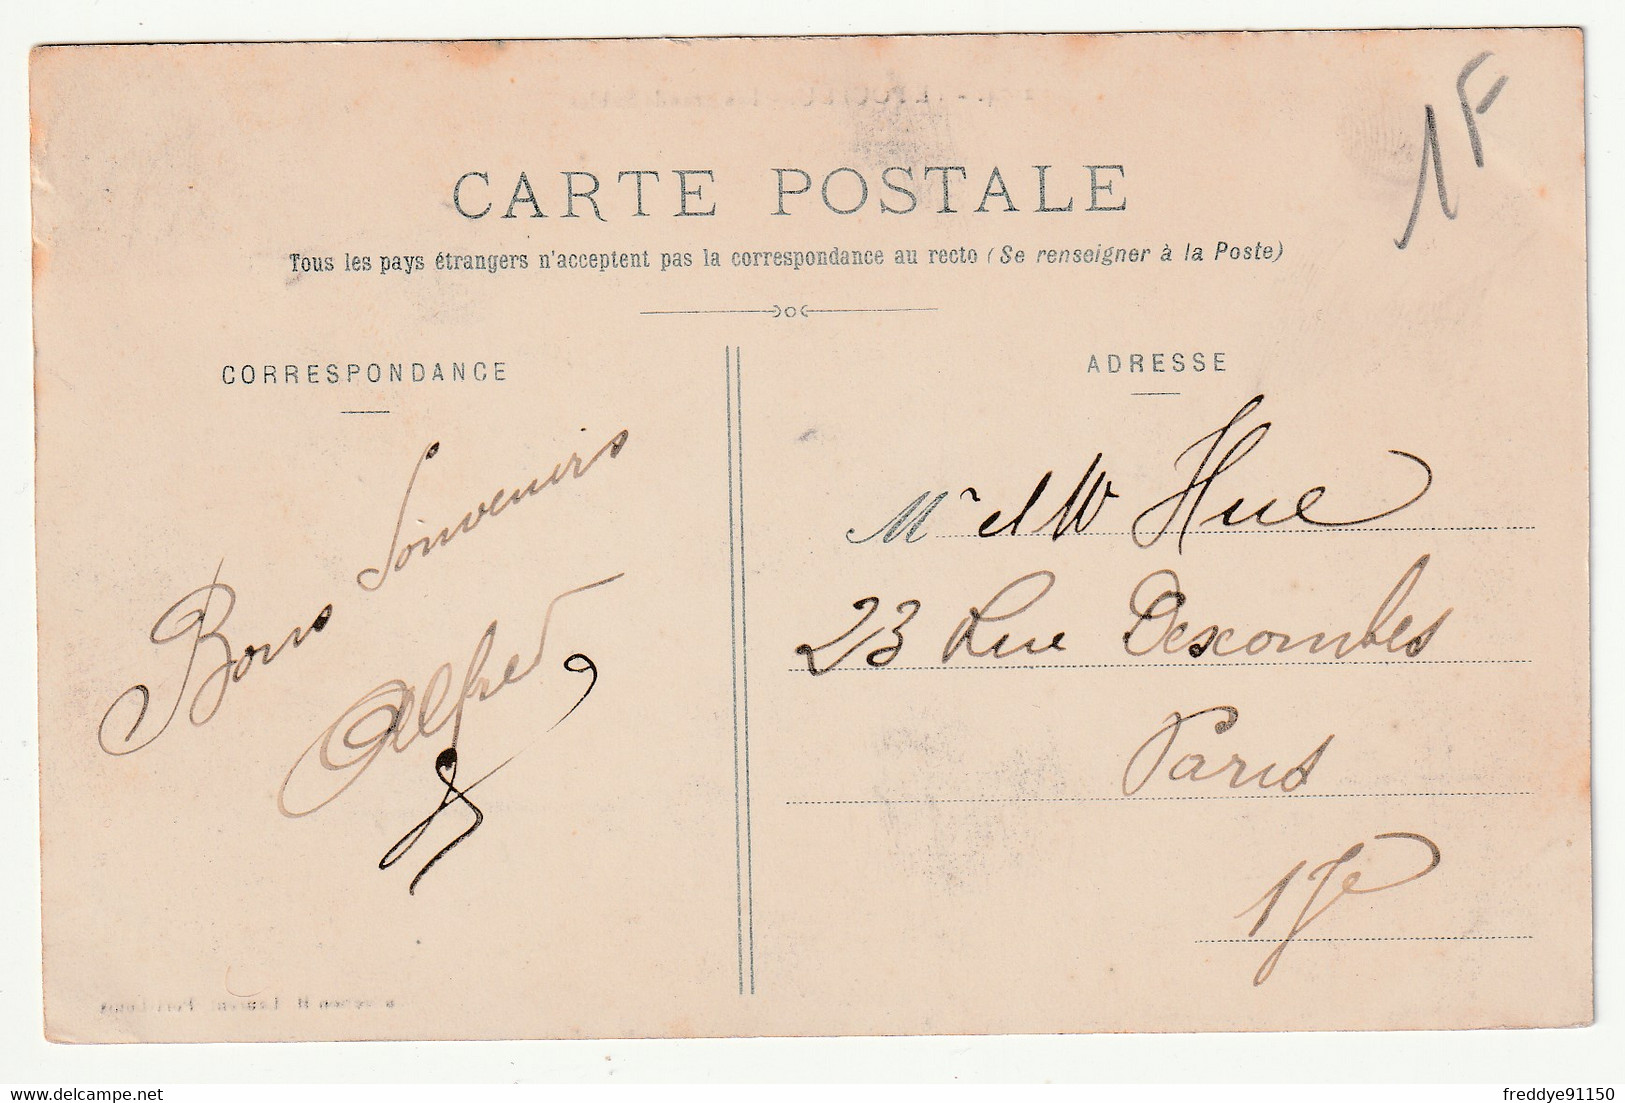 1F
CARTE POSTALE
Tous les pays étrangers n'acceptent pas la correspondance au recto (Se renseigner à la Poste)
CORRESPONDANCE
Bons Souvenirs
Alfred
ADRESSE
Mr et M Hue
23 Rue Descombes
Paris
17e
freddye91150